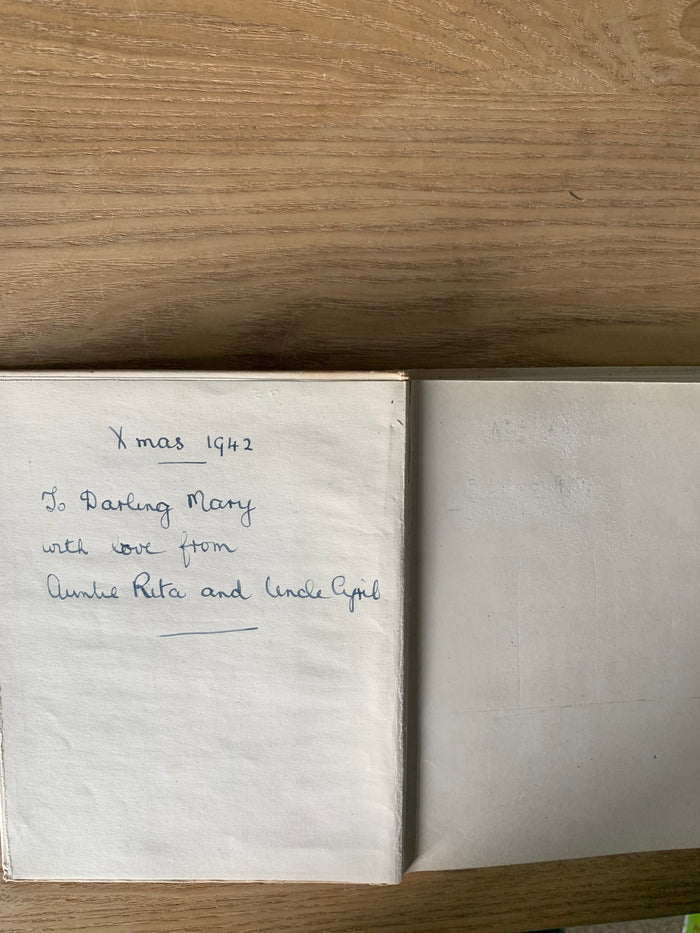 Xmas 1942
To Darling Mary
with love from
Auntie Rita and Uncle Cyril